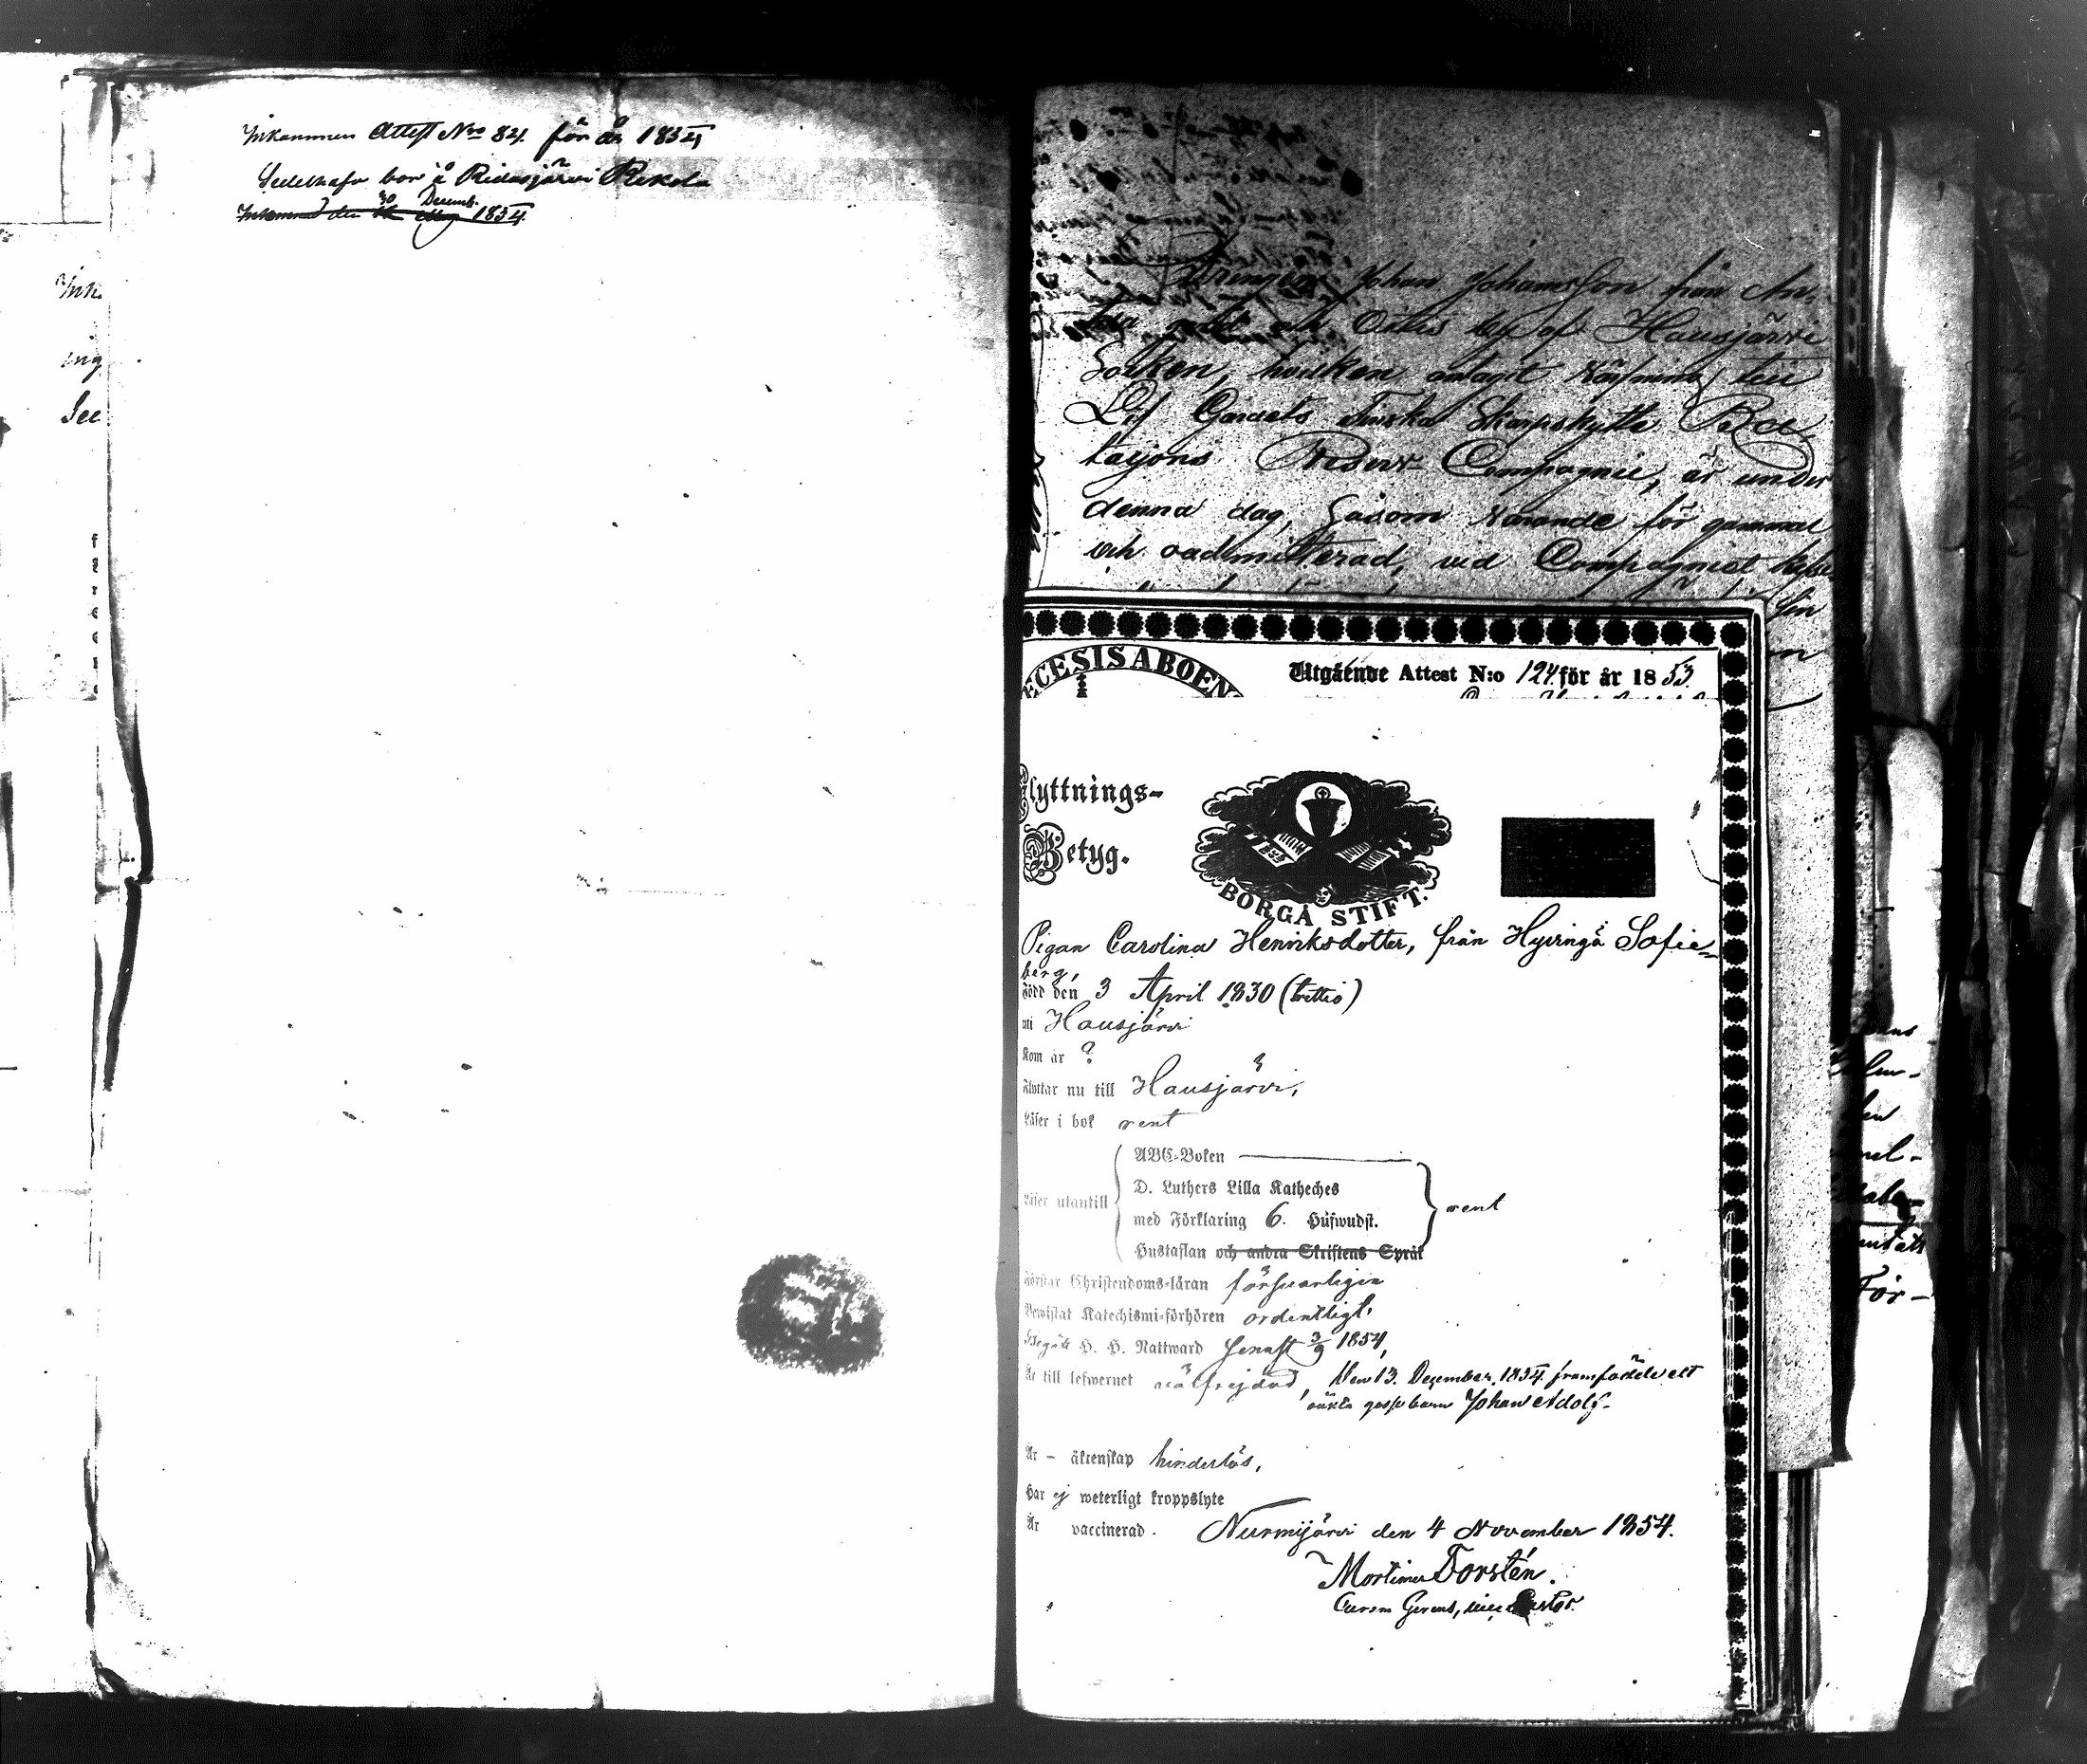 Inkommen Attest No 84. för år 1854
Sedelhafv bor å Ridasjärvi Rekola
Inkommen den 30 Decemb. 1854.
Ink
ing
See
Drengen Johan Johansson från An-
och Oitis by af Hausjärvi
Socken, hvilken antagit värfning till
Lif Gardets Finska Skarpskytte Ba
taljons Reserv Compagnie, är under
denna dag, såsom varande för gammal
och oadmitterad, vid Compagniet
ECESIS ABOEN
Utgående Attest N:o 124. för år 1853.
Flyttnings-
Betyg.
BORGÅ STIFT.
Pigan Carolina Henriksdotter, från Hyvingä Sofie-
berg,
Född den 3 April 1830 (trettio)
uti Hausjärvi
Kom år ?
Flyttar nu till Hausjärvi,
Läser i bok rent
ABC-Boken
D. Luthers Lilla Katheches
Läser utantill
med Förklaring 6. Hufwudst.
rent
Hustaflan och andra Skriftens Språk
Förstår Christendoms-läran försvarligen
Bewistat Katechismi-förhören ordentligt.
Begått H. H. Nattward senast 3/9 1854,
Är till lefwernet välfrejdad, Den 13. Dezember 1854 framfödde ett
oäkta gossebarn Johan Adolf.
Är - äktenskap hinderlös,
Har ej weterligt kroppslyte
Är vaccinerad.
Nurmijärvi den 4 November 1854.
Mortimer Forstén.
Curam Gerens, vice Pastor.
För-